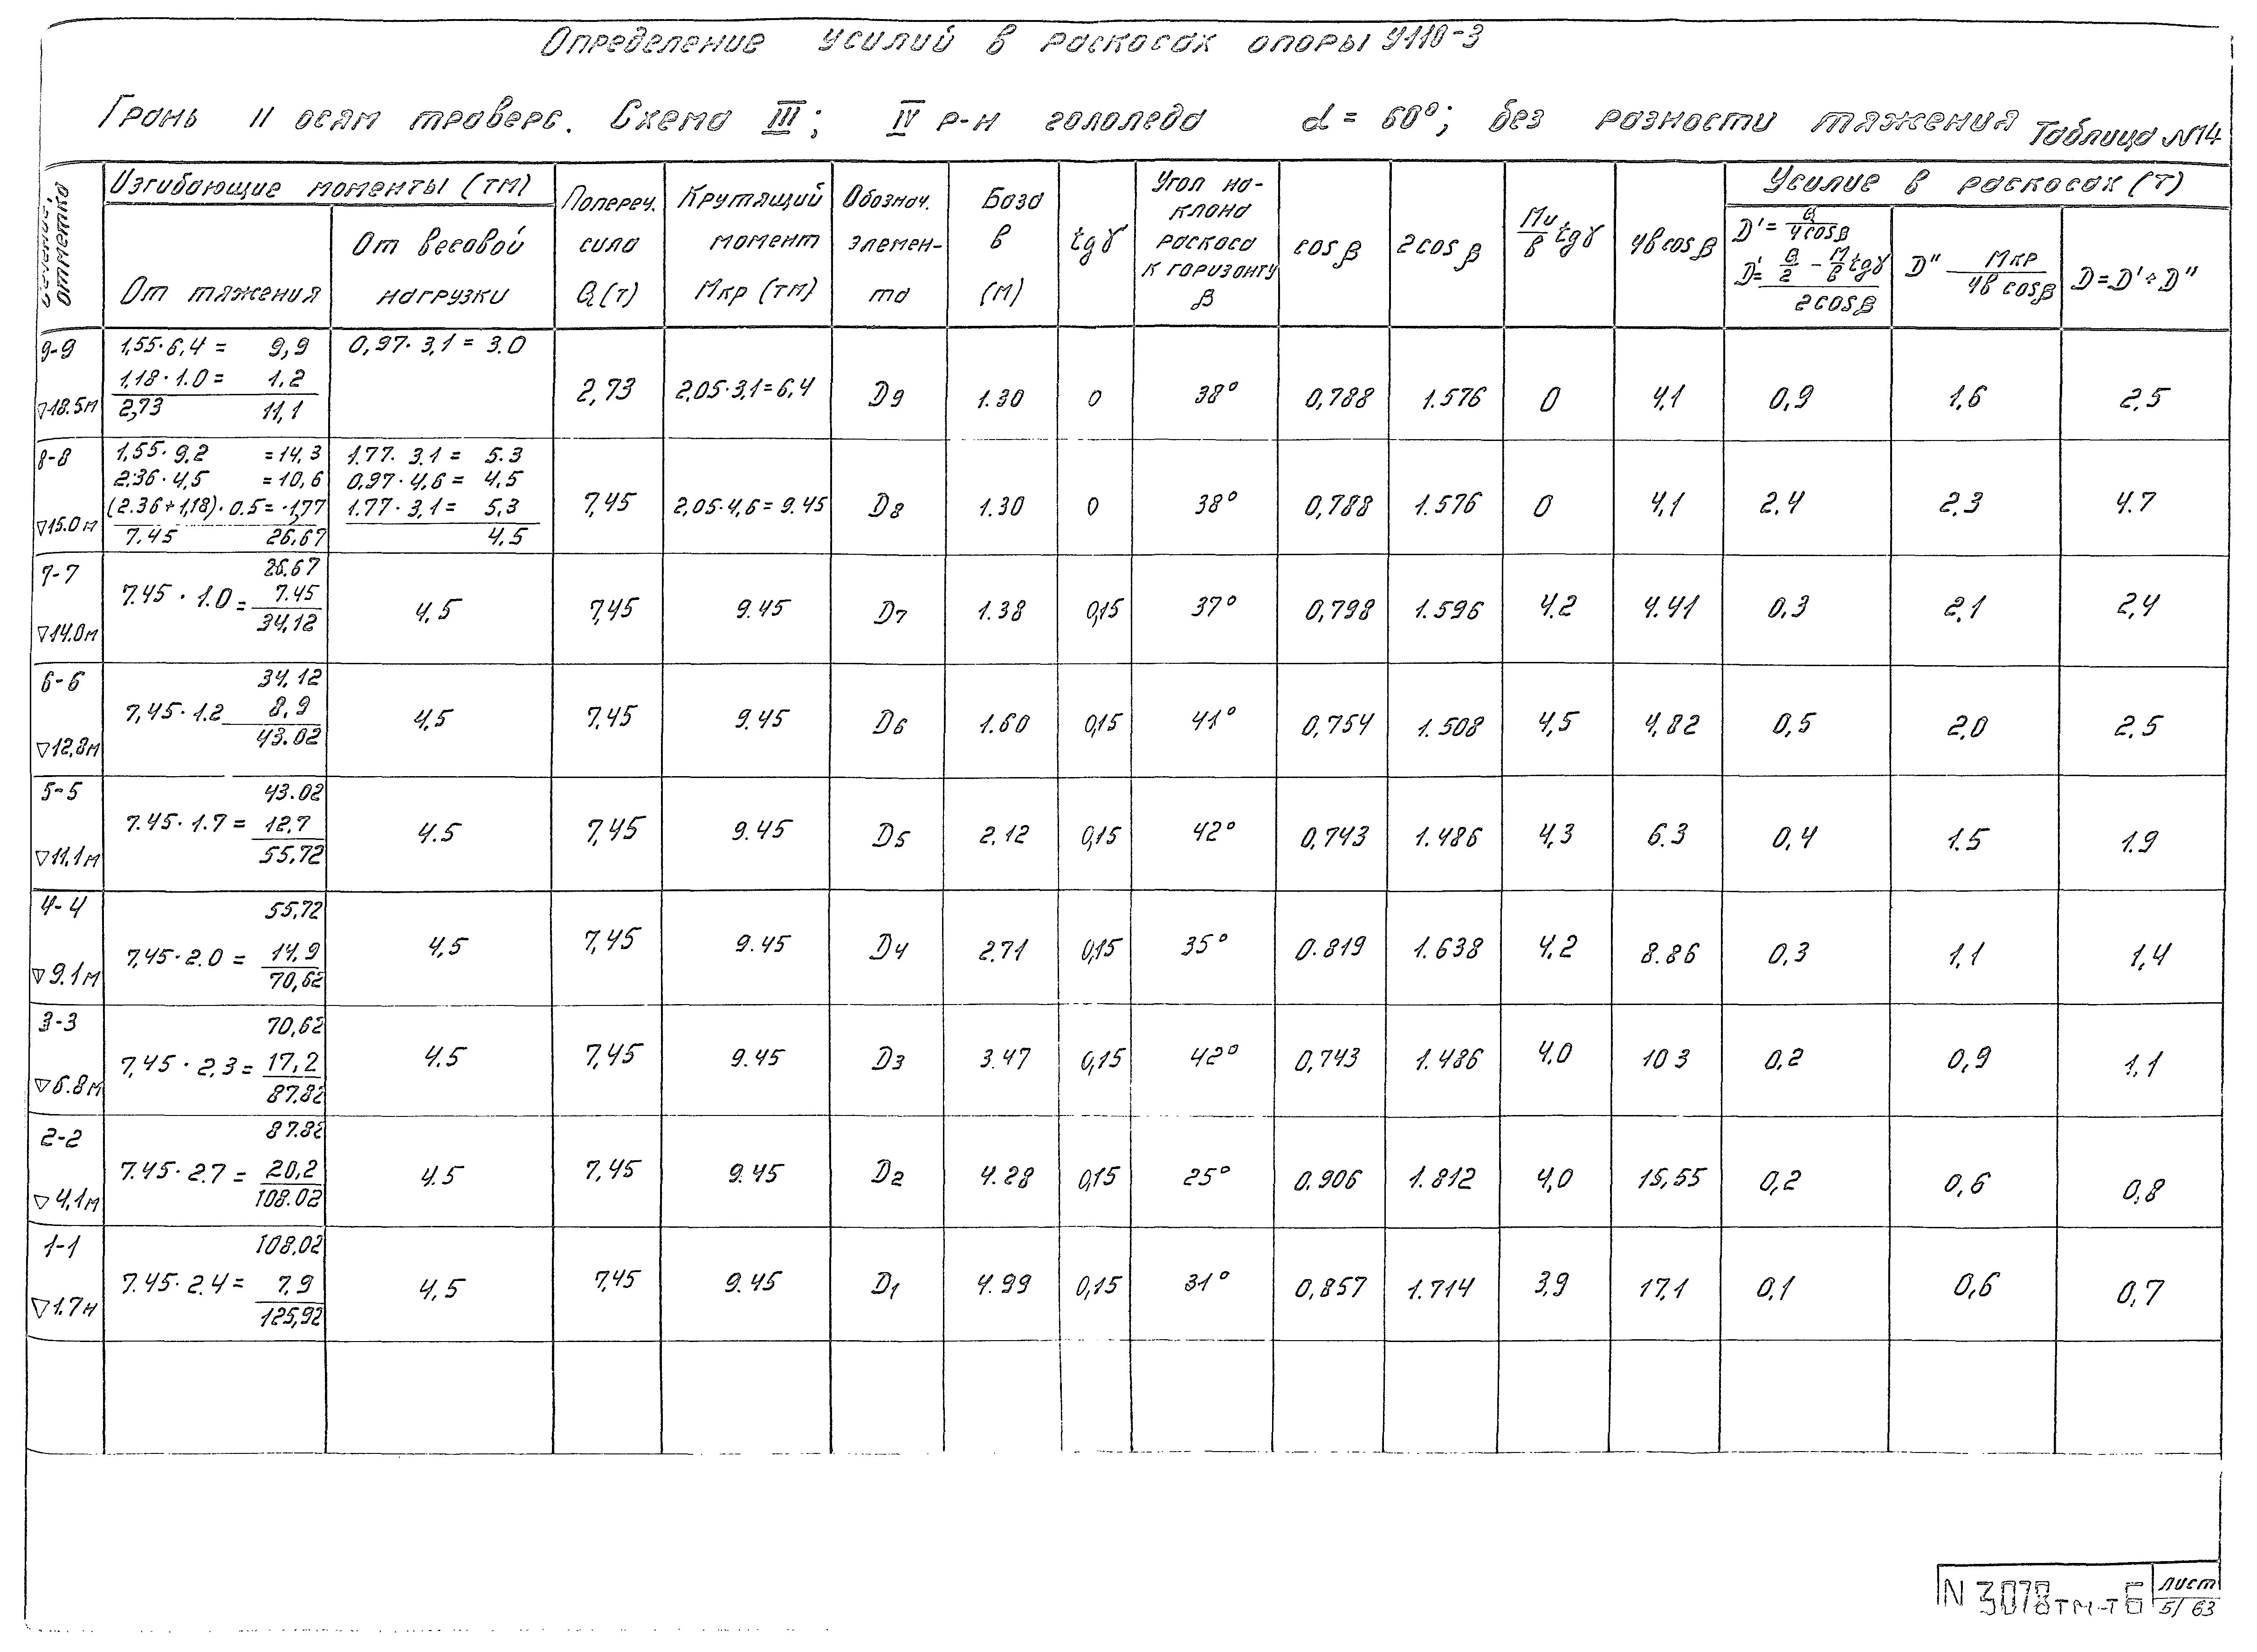 Определение усилий в раскосах опоры У110-3
Грань II осям траверс. Схема III; IV р-н гололеда α = 60°; без разности тяжения
Таблица №14
Сечение, отметка
Изгибающие моменты (тм)
От тяжения
От весовой нагрузки
Попереч. сила Q (т)
Крутящий момент Мкр (тм)
Обознач. элемен-та
База в (м)
tgγ
Угол на-клона раскоса к горизонту β
cos β
2cos β
Ми/в tgγ
4в cos β
Усилие в раскосах (т)
D' = Q/4cosβ
D' = (Q/2 - М/в tgγ)/2cosβ
D" Мкр/4в cosβ
D = D' + D"
9-9 ▽18.5м
1,55·6,4 = 9,9
1,18·1.0 = 1.2
2,73 11,1
0,97·3,1 = 3.0
2,73 2,05·3,1=6,4 D9 1.30 0 38° 0,788 1.576 0 4,1 0,9 1,6 2,5
8-8 ▽15.0м
1,55·9,2 =14,3
2.36·4,5 =10,6
(2.36+1,18)·0.5=·1,77
7.45 26,67
1.77·3.1 = 5.3
0,97·4,6 = 4,5
1.77·3,1 = 5,3
4.5
7,45 2,05·4,6=9.45 D8 1.30 0 38° 0,788 1.576 0 4,1 2.4 2,3 4.7
7-7 ▽14.0м
26,67
7.45·1.0 = 7.45
34,12
4,5 7,45 9.45 D7 1.38 0,15 37° 0,798 1.596 4.2 4.41 0,3 2,1 2,4
6-6 ▽12,8м
34,12
7,45·1.2 8,9
43.02
4,5 7,45 9.45 D6 1.60 0,15 41° 0,754 1.508 4,5 4,82 0,5 2.0 2.5
5-5 ▽11,1м
43.02
7.45·1.7 = 12,7
55,72
4.5 7,45 9.45 D5 2,12 0,15 42° 0,743 1.486 4,3 6.3 0,4 1.5 1.9
4-4 ▽9.1м
55,72
7,45·2.0 = 14,9
70,62
4,5 7,45 9.45 D4 2.71 0,15 35° 0.819 1.638 4,2 8.86 0,3 1,1 1,4
3-3 ▽6.8м
70,62
7,45·2,3 = 17,2
87.82
4.5 7,45 9.45 D3 3.47 0,15 42° 0,743 1.486 4,0 10 3 0,2 0,9 1,1
2-2 ▽4,1м
87.82
7.45·2.7 = 20,2
108.02
4.5 7,45 9.45 D2 4.28 0,15 25° 0.906 1.812 4,0 15,55 0,2 0,6 0,8
1-1 ▽1.7м
108,02
7.45·2.4 = 7,9
125,92
4,5 7,45 9.45 D1 4.99 0,15 31° 0,857 1.714 3,9 17,1 0,1 0,6 0,7
N 3078тм-т6
лист
5/ 63